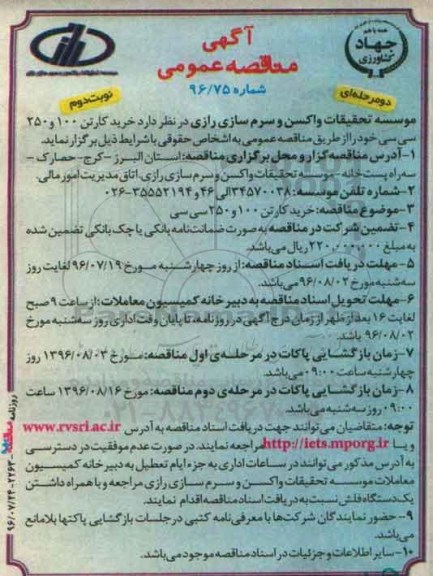 آگهی
مناقصه عمومی
شماره ۹۶/۷۵
همه با هم
جهاد
کشاورزی
دو مرحله‌ای
نوبت دوم
موسسه تحقیقات واکسن و سرم سازی رازی در نظر دارد خرید کارتن ۱۰۰ و ۲۵۰
سی سی خود را از طریق مناقصه عمومی به اشخاص حقوقی با شرایط ذیل برگزار نماید.
۱- آدرس مناقصه گزار و محل برگزاری مناقصه: استان البرز - کرج- حصارک -
سه راه پست خانه - موسسه تحقیقات واکسن و سرم سازی رازی. اتاق مدیریت امور مالی.
۲- شماره تلفن موسسه: ۳۴۵۷۰۰۳۸ الی ۴۶ و ۳۵۵۵۲۱۹۴-۰۲۶
۳- موضوع مناقصه: خرید کارتن ۱۰۰ و ۲۵۰ سی سی
۴- تضمین شرکت در مناقصه به صورت ضمانت نامه بانکی یا چک بانکی تضمین شده
به مبلغ ۲۲۰,۰۰۰,۰۰۰ ریال می‌باشد.
۵- مهلت دریافت اسناد مناقصه: از روز چهارشنبه مورخ ۹۶/۰۷/۱۹ لغایت روز
سه شنبه مورخ ۹۶/۰۸/۰۲ می‌باشد.
۶- مهلت تحویل اسناد مناقصه به دبیرخانه کمیسیون معاملات: از ساعت ۹ صبح
لغایت ۱۶ بعد از ظهر از زمان درج آگهی در روزنامه، تا پایان وقت اداری روز سه شنبه مورخ
۹۶/۰۸/۰۲ باشد.
۷- زمان بازگشایی پاکات در مرحله‌ی اول مناقصه: مورخ ۱۳۹۶/۰۸/۰۳ روز
چهارشنبه ساعت ۰۹:۰۰ می‌باشد.
۸- زمان بازگشایی پاکات در مرحله‌ی دوم مناقصه: مورخ ۱۳۹۶/۰۸/۱۶ ساعت
۰۹:۰۰ روز سه شنبه می‌باشد.
توجه: متقاضیان می‌توانند جهت دریافت اسناد مناقصه به آدرس www.rvsri.ac.ir
و یا http://iets.mporg.ir مراجعه نمایند. در صورت عدم موفقیت در دسترسی
به آدرس مذکور می‌توانند در ساعات اداری به جزء ایام تعطیل به دبیرخانه کمیسیون
معاملات موسسه تحقیقات واکسن و سرم سازی رازی مراجعه و با همراه داشتن
یک دستگاه فلش نسبت به دریافت اسناد مناقصه اقدام نمایند.
۹- حضور نمایندگان شرکت‌ها با معرفی نامه کتبی در جلسات بازگشایی پاکتها بلامانع
می‌باشد.
۱۰- سایر اطلاعات و جزئیات در اسناد مناقصه موجود می‌باشد.
روزنامه مناقصه ۲۲۶۳-۹۶/۰۷/۲۴